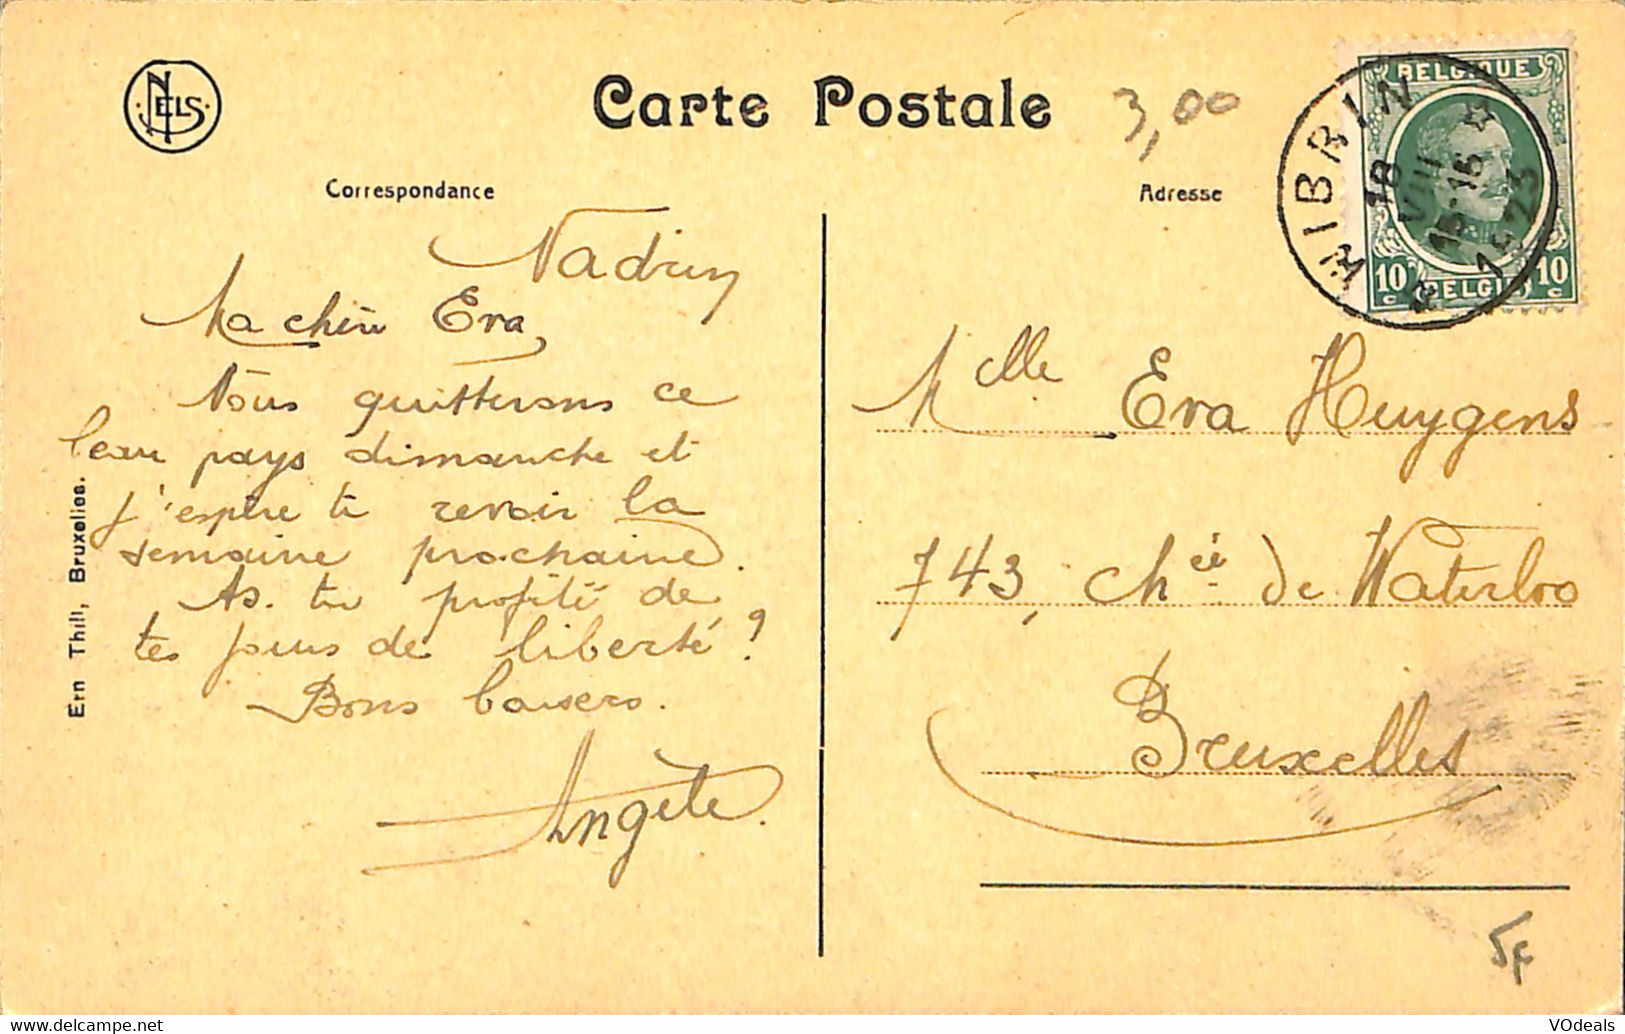 NELS
Carte Postale
3,00
Correspondance
Adresse
BELGIQUE
10c
10c
BELGIË
WIBRIN
18
VIII
15-16
1923
Nadrin
Ma chère Eva,
Nous quitterons ce
beau pays dimanche et
j'espère te revoir la
semaine prochaine.
As-tu profité de
tes jours de liberté?
Bons baisers.
Angèle.
Mlle Eva Huygens
743, Chée de Waterloo
Bruxelles
Ern Thill, Bruxelles.
5F
© VOdeals